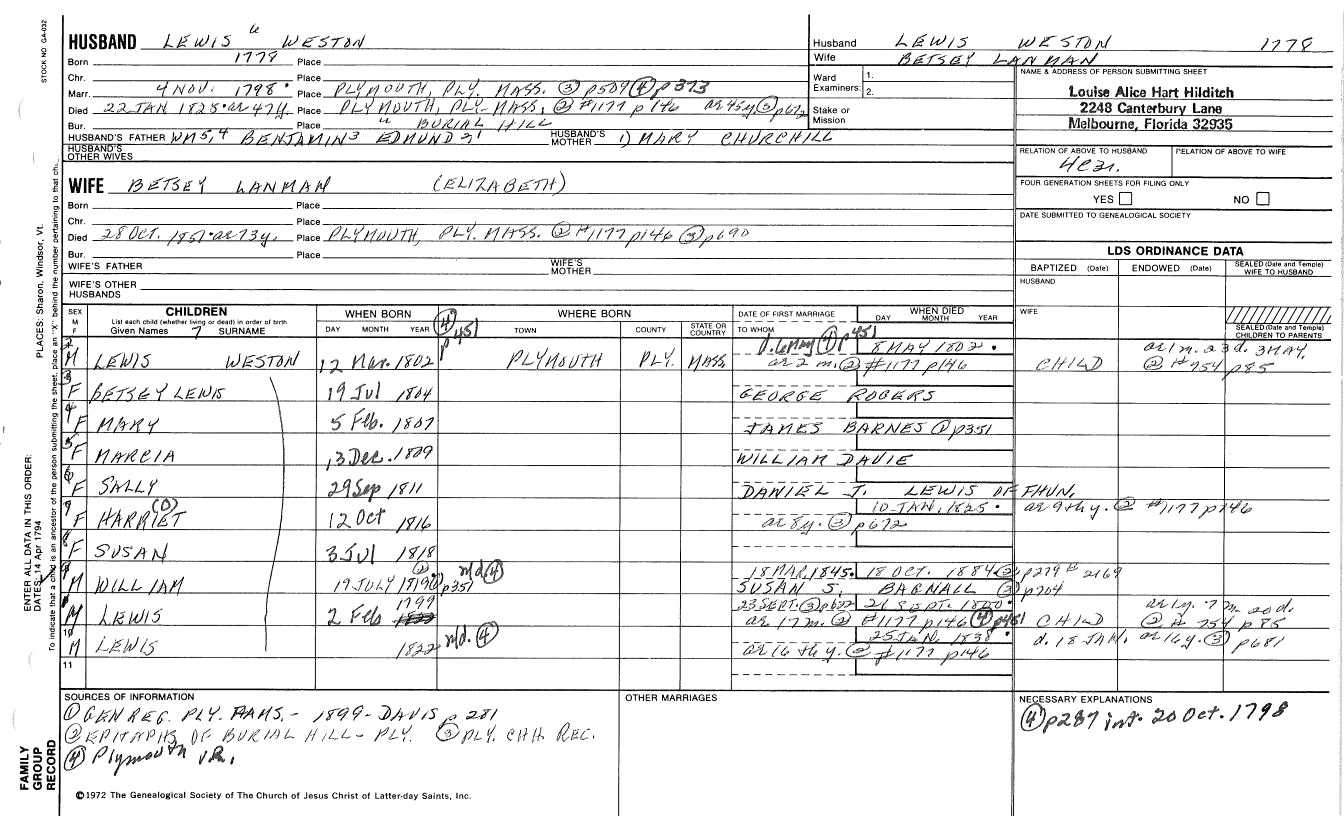 STOCK NO. GA-032
HUSBAND LEWIS 6 WESTON
Born 1778 Place
Chr. Place
Marr. 4 NOV. 1798 Place PLYMOUTH, PLY. MASS. ③ p509 ④ p373
Died 22 JAN 1825 • ae 47 y. Place PLYMOUTH, PLY. MASS. ② #1177 p146 ae 45 y ③ p672
Bur. Place " BURIAL HILL
HUSBAND'S FATHER WM 5, 4 BENJAMIN 3 EDMUND HUSBAND'S MOTHER 1) MARY CHURCHILL
HUSBAND'S OTHER WIVES
Husband LEWIS WESTON 1778
Wife BETSEY LANMAN
Ward 1.
Examiners: 2.
Stake or Mission
NAME & ADDRESS OF PERSON SUBMITTING SHEET
Louise Alice Hart Hilditch
2248 Canterbury Lane
Melbourne, Florida 32935
RELATION OF ABOVE TO HUSBAND RELATION OF ABOVE TO WIFE
FOUR GENERATION SHEETS FOR FILING ONLY
YES NO
DATE SUBMITTED TO GENEALOGICAL SOCIETY
WIFE BETSEY LANMAN (ELIZABETH)
Born Place
Chr. Place
Died 28 OCT. 1851 • ae 73 y. Place PLYMOUTH, PLY. MASS. ② #1177 p146 ③ p690
Bur. Place
WIFE'S FATHER WIFE'S MOTHER
WIFE'S OTHER HUSBANDS
LDS ORDINANCE DATA
BAPTIZED (Date) ENDOWED (Date) SEALED (Date and Temple) WIFE TO HUSBAND
HUSBAND
WIFE
SEALED (Date and Temple) CHILDREN TO PARENTS
SEX M F
CHILDREN
List each child (whether living or dead) in order of birth
Given Names 7 SURNAME
WHEN BORN
DAY MONTH YEAR
④ p451
WHERE BORN
TOWN COUNTY STATE OR COUNTRY
DATE OF FIRST MARRIAGE
TO WHOM
WHEN DIED
DAY MONTH YEAR
2 M LEWIS WESTON 12 Mar. 1802 PLYMOUTH PLY. MASS. d. 6 May ④ p451 8 MAY 1802 •
ae 2 m. ② #1177 p146 CHILD ae 1 m. 23 d. 3 MAY. ② #754 p85
3 F BETSEY LEWIS 19 Jul 1804 GEORGE ROGERS
4 F MARY 5 Feb. 1807 JAMES BARNES ① p351
5 F MARCIA 13 Dec. 1809 WILLIAM DAVIE
6 F SALLY 29 Sep 1811 DANIEL J. LEWIS OF FHVN.
7 F HARRIET (D) 12 Oct 1816 10 JAN. 1825 • ae 9th y. ② #1177 p146
ae 8 y. ③ p672
8 F SUSAN 3 Jul 1818
9 M WILLIAM 19 JULY 1819 ② p351 n/d ④ 18 MAR. 1845 • 18 OCT. 1884 ② p279 # 2169
SUSAN S. BAGNALL ③ p704
1 M LEWIS 2 Feb 1799 23 SEPT. ③ p622 21 SEPT. 1800 •
ae 17 m. ② #1177 p146 ④ p451 CHILD ae 1 y. 7 m. 20 d. ② # 754 p85
10 M LEWIS 1822 n/d. ④ 25 JAN. 1838 •
ae 16th y. ② #1177 p146 d. 18 JAN. ae 16 y. ③ p681
11
SOURCES OF INFORMATION
① GEN REG. PLY. FAMS. - 1899 - DAVIS p 281
② EPITAPHS OF BURIAL HILL - PLY. ③ PLY. CHH. REC.
④ Plymouth VR.
OTHER MARRIAGES
NECESSARY EXPLANATIONS
④ p287 int. 20 Oct. 1798
©1972 The Genealogical Society of The Church of Jesus Christ of Latter-day Saints, Inc.
FAMILY GROUP RECORD
ENTER ALL DATA IN THIS ORDER:
DATES: 14 Apr 1794
PLACES: Sharon, Windsor, Vt.
To indicate that a child is an ancestor of the person submitting the sheet, place an "X" behind the number pertaining to that ch.